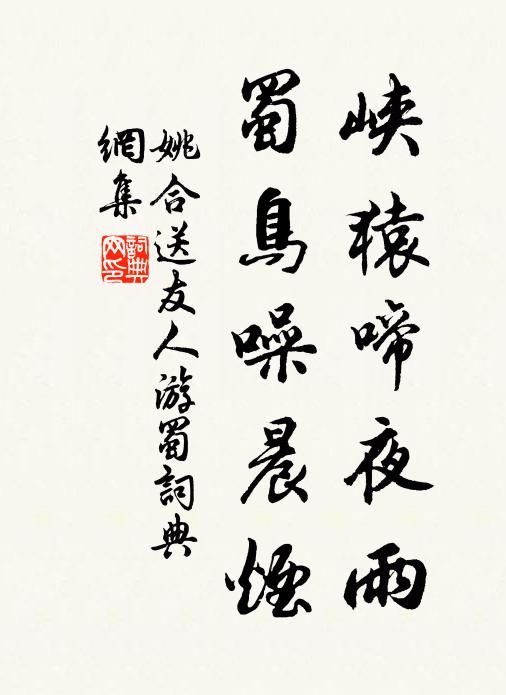 峽猿啼夜雨
蜀鳥噪晨煙
姚合送友人游蜀詞典
網集
詞典网印